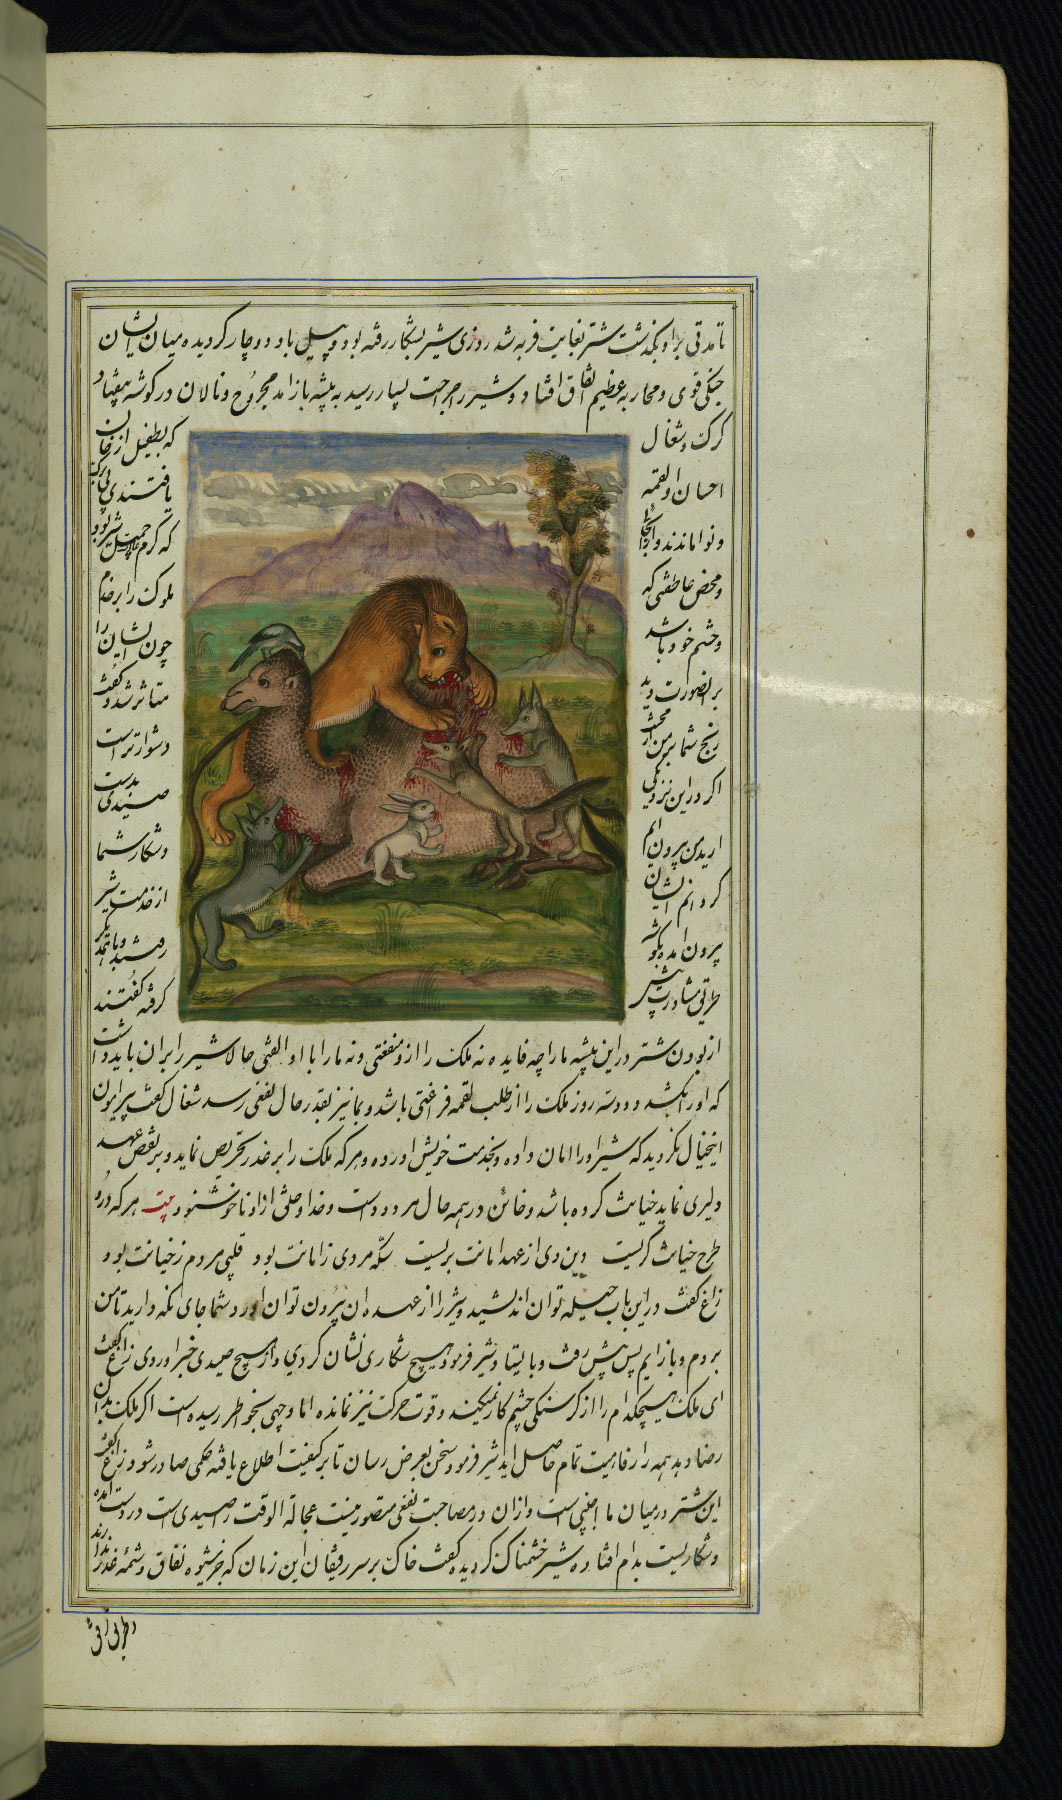 تا مدتی برو بگذشت شتر بغایت فربه شد روزی شیر بشکار رفته بود و پیل باو دوچار گردیده میان ایشان
جنگی قوی و محاربه عظیم اتفاق افتاد و شیر را جراحت بسیار رسید به بیشه باز امد مجروح و نالان در گوشه بیفتاد
گرگ و شغال که بطفیل از خوان
احسان او لقمه یافتندی بی برگ
و نوا ماندند و از انجا که کرم جبلی شیر بود
و محض عاطفتی که ملوک را بر خدم
و حشم خود باشد چون ایشان را
بر انصورت دید متاثر شد و گفت
رنج شما بر من از محنت دشوارتر است
اگر در این نزدیکی صیدی بدست
ارید من بیرون ایم و شکار شما
کردانم ایشان از خدمت شیر
بیرون امده بگوشه رفتند و با یکدیگر
طرح مشاورت گرفته گفتند
از بودن شتر در این بیشه ما را چه فایده نه ملک را ازو منفعتی و نه ما را با او الفتی حالا شیر را بران باید داشت
که او را بشکند و دو سه روز ملک را از طلب لقمه فراغتی باشد و بما نیز بقدر حال نفعی رسد شغال گفت پیرامون
اینخیال نگردید که شیر او را امان داده و بخدمت خویش اورده و هر که ملک را بر غدر تحریص نماید و بر نقض عهد
دلیری نماید خیانت کرده باشد و خائن در همه حال مردود است و خدا و خلق از او ناخوشنود بیت هر که درو
طرح خیانت گریست دین وی از عهد امانت بریست سکه مردی ز امانت بود قلبی مردم ز خیانت بود
زاغ گفت در این باب حیله توان اندیشید و شیر را از عهده ان بیرون توان اورد شما جای نگه دارید تا من
بروم و باز ایم پس پیش رفت و بایستاد شیر فرمود هیچ شکاری نشان کردی و از هیچ صیدی خبر اوردی زاغ گفت
ای ملک هیچکدام را از گرسنگی چشم کار نمیکند و قوت حرکت نیز نمانده اما وجهی بخواطر رسیده است اگر ملک بدان
رضا دهد همه را رفاهیت تمام حاصل اید شیر فرمود سخن بعرض رسان تا بر کیفیت اطلاع یافته حکمی صادر شود زاغ گفت
این شتر در میان ما اجنبی است و از ان در مصاحبت نفعی متصور نیست عجالة الوقت را صیدی است در دست امده
و شکاریست بدام افتاده شیر خشمناک گردیده گفت خاک بر سر رفیقان این زمان که جز شیوه نفاق و شمه غدر ندارند